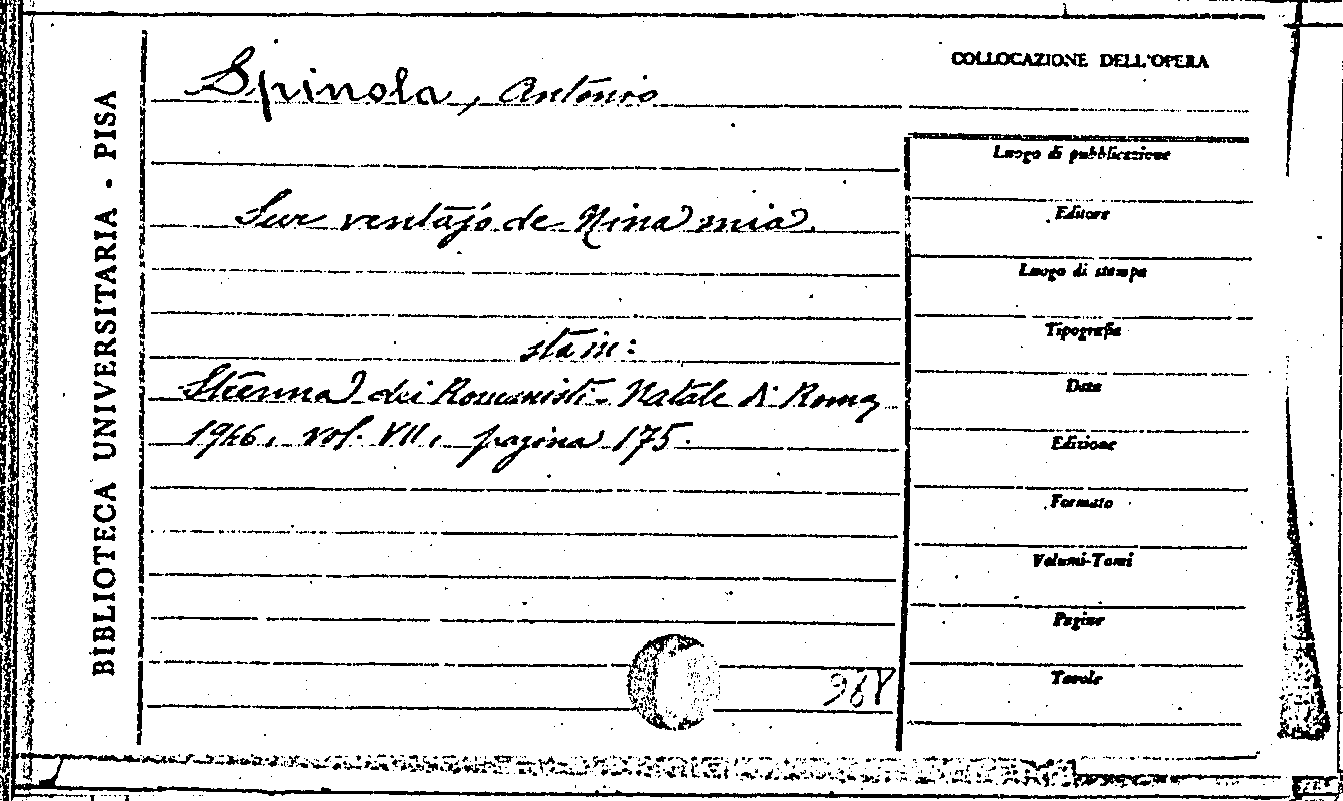 BIBLIOTECA UNIVERSITARIA - PISA
Spinola, Antonio
Sur ventajo de Nina mia.
sta in:
Strenna dei Romanisti - Natale di Roma
1946, vol. VII, pagina 175.
968
COLLOCAZIONE DELL'OPERA
Luogo di pubblicazione
Editore
Luogo di stampa
Tipografia
Data
Edizione
Formato
Volumi-Tomi
Pagine
Tavole